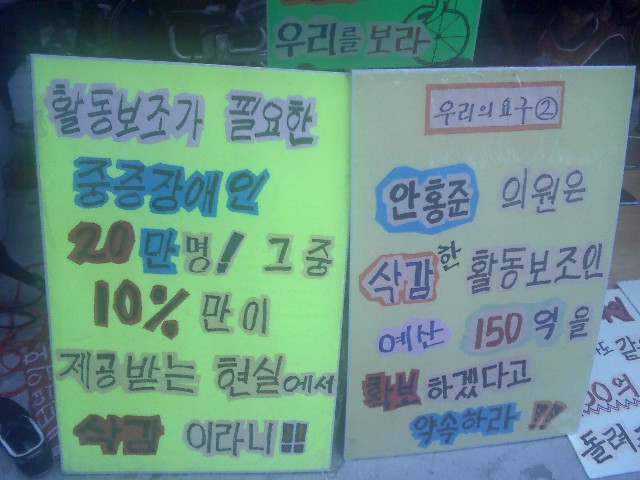 우리를 보라
활동보조가 필요한
중증장애인
20만명! 그 중
10%만이
제공받는 현실에서
삭감 이라니!!
우리의 요구②
안홍준 의원은
삭감한 활동보조인
예산 150억을
확보하겠다고
약속하라!!
억
돌려